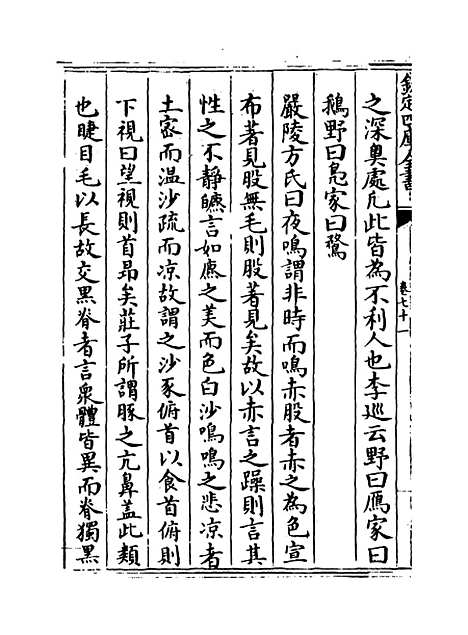 欽定四庫全書
卷七十一
之深奥處凡此皆為不利人也李巡云野曰鴈家曰
鵝野曰鳧家曰鶩
嚴陵方氏曰夜鳴謂非時而鳴赤股者赤之為色宣
布著見股無毛則股著見矣故以赤言之躁則言其
性之不静皫言如麃之美而色白沙鳴鳴之悲凉者
土宻而温沙疏而凉故謂之沙豕俯首以食首俯則
下視曰望視則首昂矣莊子所謂豚之亢鼻蓋此類
也睫目毛以長故交黒脊者言衆體皆異而脊獨黒